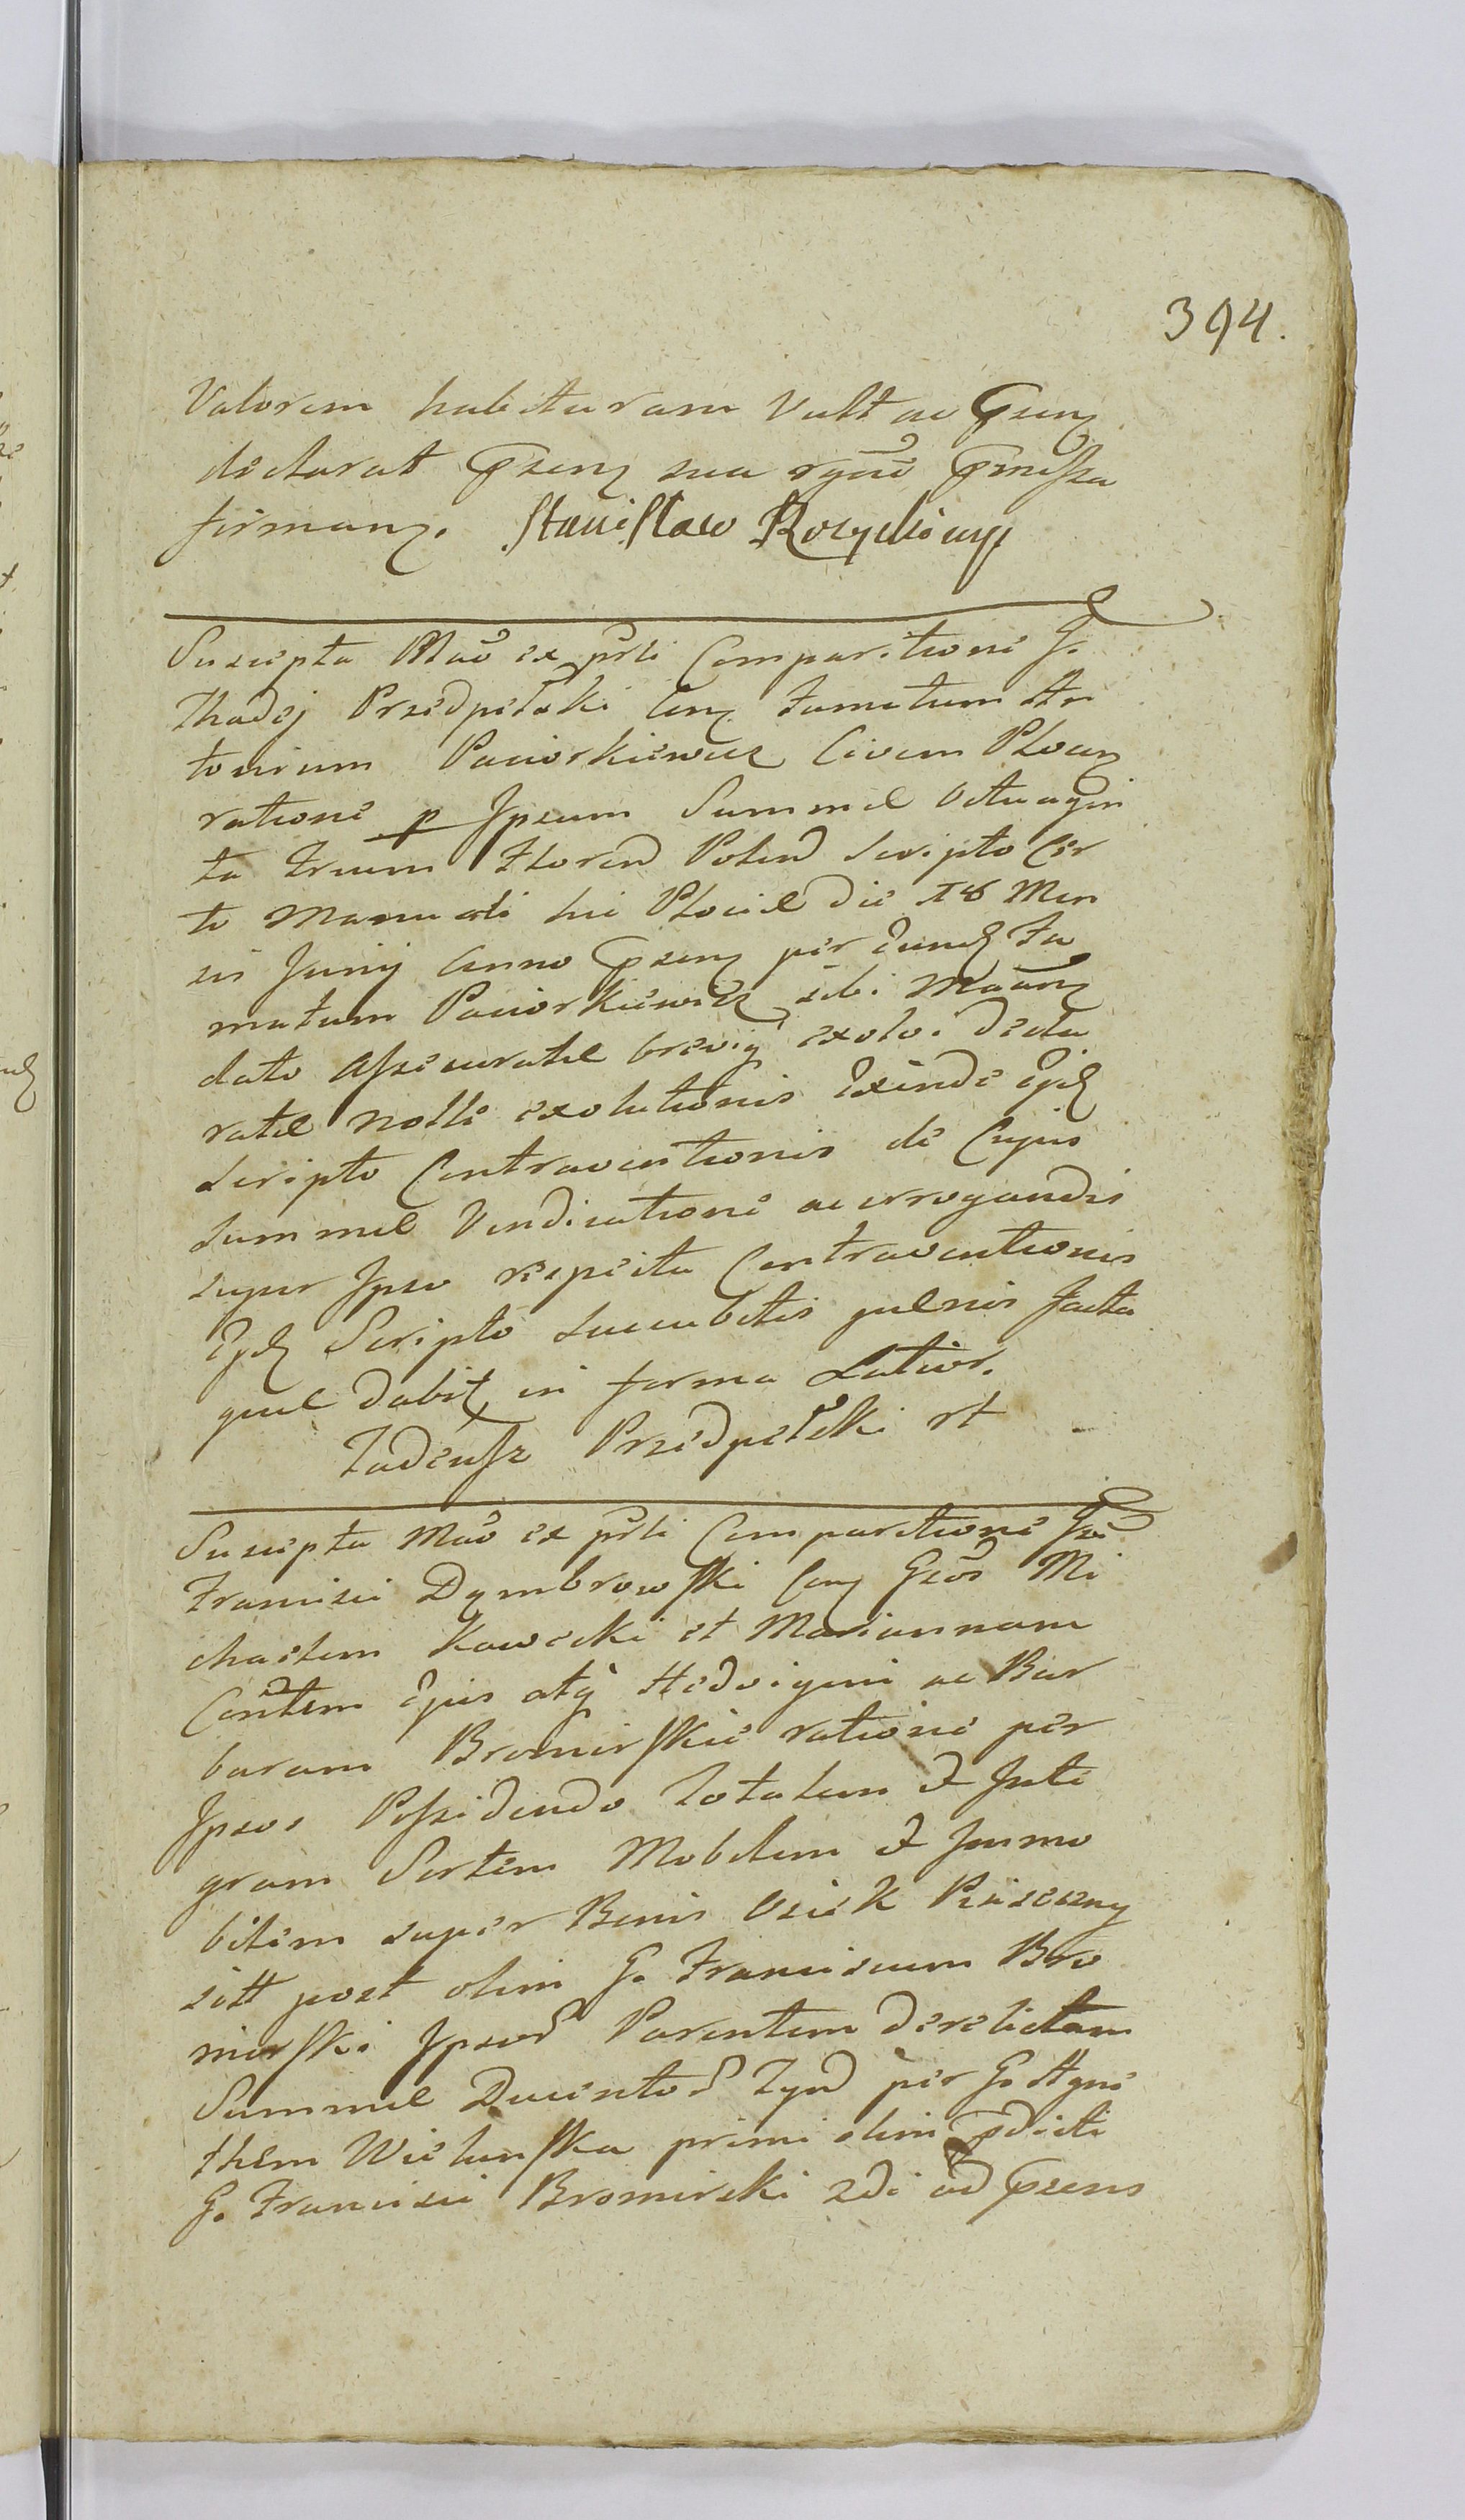 394.
Valorem habituram Vult ac Gsenz
declarat Gsenz sua rgnē Gmissa
firmanz. Stanisław Rozycki mp
Suscepta Mao ex prli Comparitione G.
Thadej Przedpełski Conz Famatum An
tonium Paciorkiewicz Civem Plocen
ratione p Ipsum Summæ Octuagin
ta Trium Floren Polon Scripto Cer
to Manuali hic Plociæ die 18 Men
sis Junij Anno Gsenz per Eund Fa
matum Paciorkiewicz sibi
dato Assecuratæ brevig exolvi decla
ratæ nolle exolutionis Exinde Ejd
Scripto Contraventionis de Cujus
Summæ Vendicatione ac irrogandis
super Ipso respectu Contraventionis
Ejd Scripto succubitis pœnis facta
quæ dabit in forma Latior.
Tadeusz Przedpełski rt
Suscepta Mao ex prli Comparitione Gsi
Francisci Dymbrowski Conz Gsos Mi
chaelem Kawecki et Mariannam
Contem Ejus atq Hedvigim ac Bar
baram Bromirskie ratione per
Ipsos Possidendo Totalem et Inte
gram Sortem Mobilem et Immo
bilem super Bonis Osiek Piaseczny
sitt post olim G. Franciscum Bro
mirski Ipsor Parentem derelictam
Summæ Ducentor Tynf per G. Agne
them Wielunska primi olim pdicti
G. Francisci Bromirski 2di ad Gsens